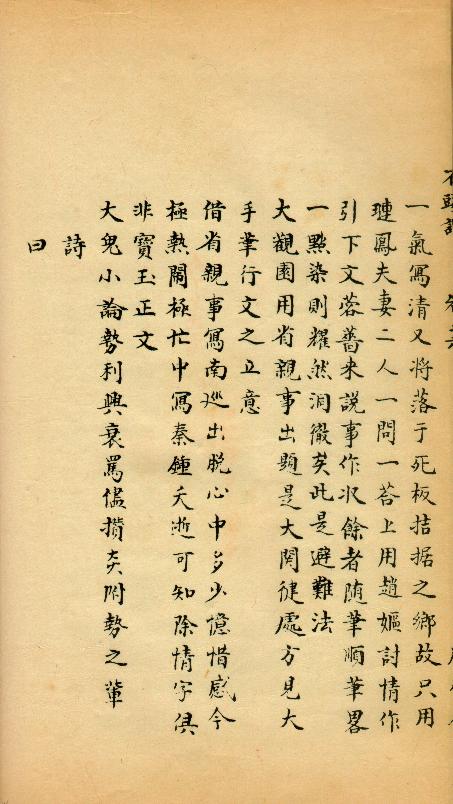 一氣寫清又將落于死板拮据之鄉故只用
璉鳳夫妻二人一問一荅上用趙嫗討情作
引下文蓉薔来説事作収餘者随筆順筆畧
一㸃染則耀然洞徹矣此是避難法
大觀園用省親事出題是大関鍵處方見大
手筆行文之立意
借省親事寫南巡出脱心中多少憶惜感今
極熱鬧極忙中寫秦鍾夭逝可知除情字俱
非寳玉正文
大鬼小論勢利興衰罵儘攢炎附勢之輩
詩
曰